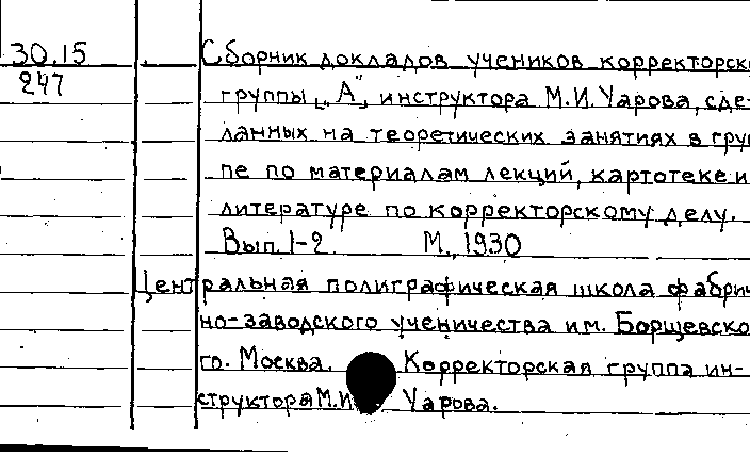 30.15 Сборник докладов учеников корректорск
247 группы „А„ инструктора М.И. Уарова, сде-
ланных на теоретических занятиях в груп
пе по материалам лекций, картотеке и
литературе по корректорскому делу.
Вып. 1-2. М., 1930
Центральная полиграфическая школа фабрич
но-заводского ученичества им. Борщевско
го. Москва. Корректорская группа ин-
структора М.И. Уарова.